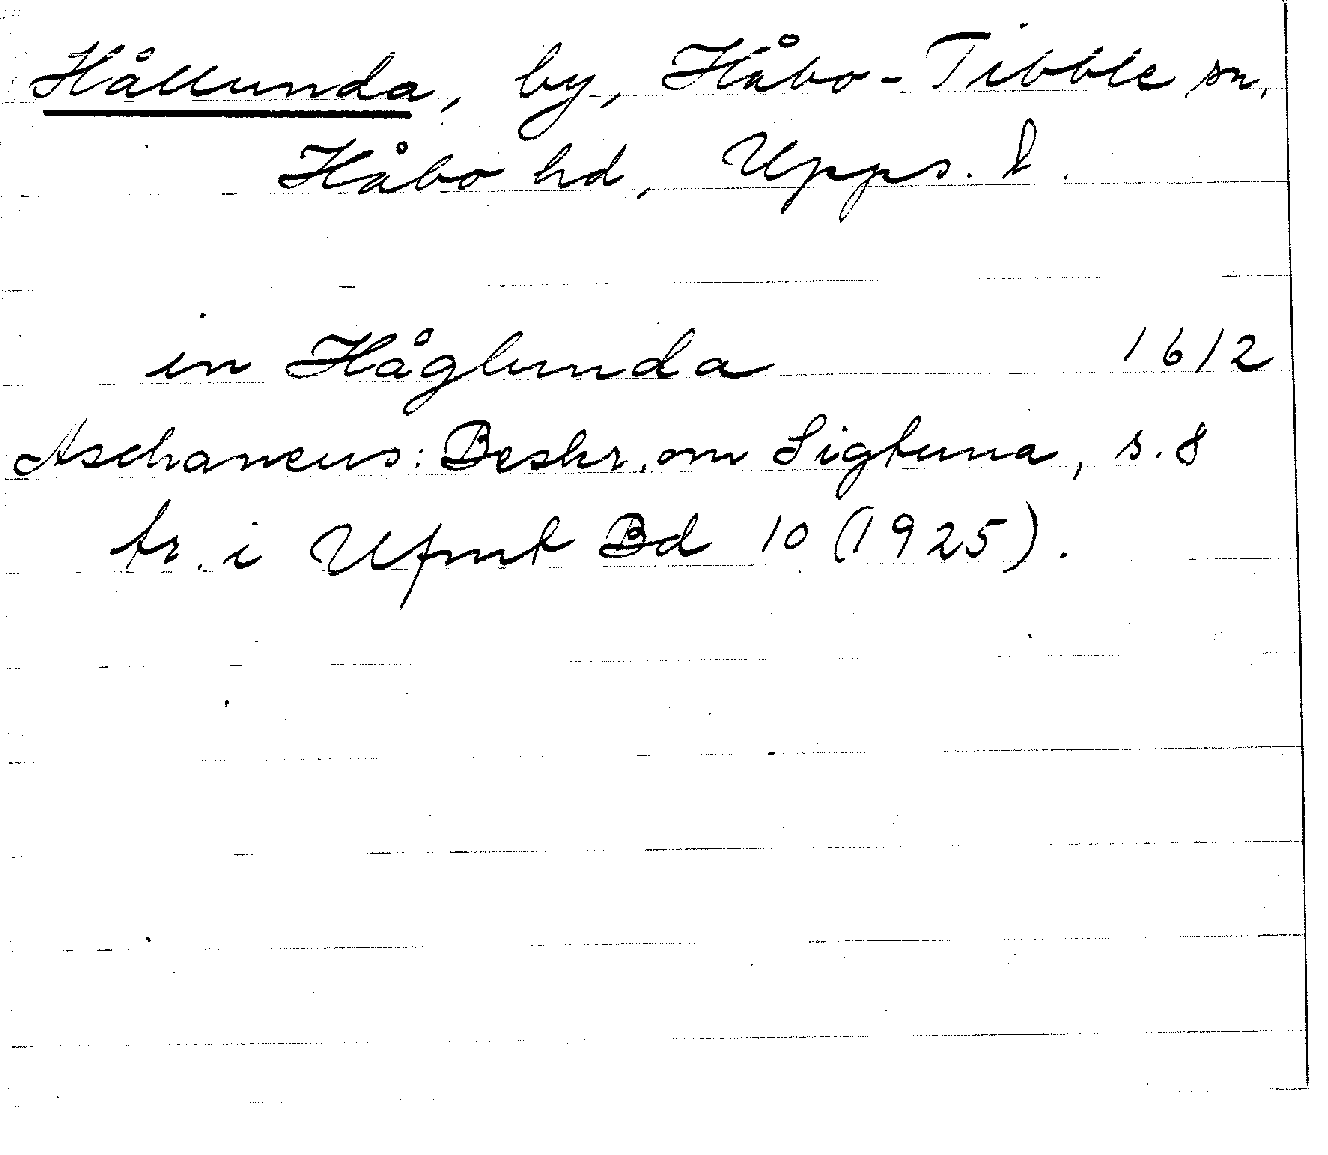 Hållunda, by, Håbo-Tibble sn,
Håbo hd, Upps. l.
in Håglunda 1612
Aschaneus: Beskr. om Sigtuna, s. 8
tr. i Ufmt Bd 10 (1925).